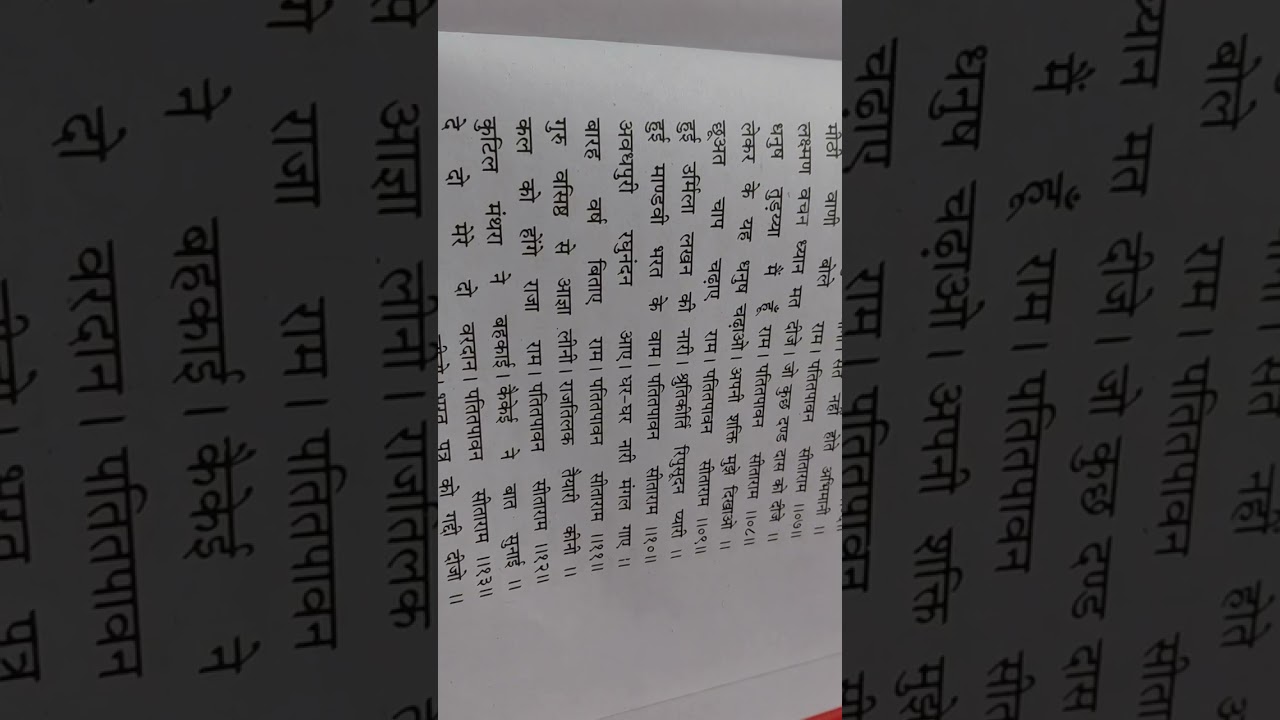 मत नहीं होते अभिमानी ।
मीठी वाणी बोले राम। पतितपावन सीताराम ।।०७।।
लक्ष्मण वचन ध्यान मत दीजे। जो कुछ दण्ड दास को दीजे ।।
धनुष तुड़य्या मैं हूँ राम। पतितपावन सीताराम ।।०८।।
लेकर के यह धनुष चढ़ाओ। अपनी शक्ति मुझे दिखाओ ।।
छूअत चाप चढ़ाए राम। पतितपावन सीताराम ।।०९।।
हुई उर्मिला लखन की नारी। श्रुतिकीर्ति रिपुसूदन प्यारी ।।
हुई माण्डवी भरत के वाम। पतितपावन सीताराम ।।१०।।
अवधपुरी रघुनंदन आए। घर-घर नारी मंगल गाए ।।
बारह वर्ष बिताए राम। पतितपावन सीताराम ।।११।।
गुरु वसिष्ठ से आज्ञा लीनी। राजतिलक तैयारी कीनी ।।
कल को होंगे राजा राम। पतितपावन सीताराम ।।१२।।
कुटिल मंथरा ने बहकाई। कैकेई ने बात सुनाई ।।
दे दो मेरे दो वरदान। पतितपावन सीताराम ।।१३।।
भरत पुत्र को गद्दी दीजो ।।